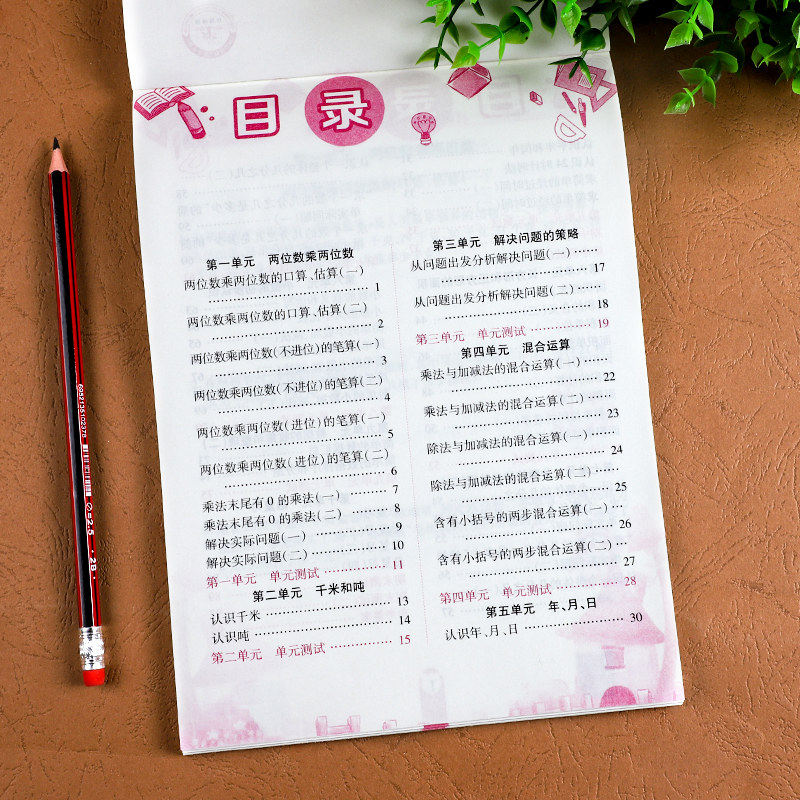 目录
第一单元 两位数乘两位数
两位数乘两位数的口算、估算(一)
…………………………… 1
两位数乘两位数的口算、估算(二)
…………………………… 2
两位数乘两位数(不进位)的笔算(一)
…………………………… 3
两位数乘两位数(不进位)的笔算(二)
…………………………… 4
两位数乘两位数(进位)的笔算(一)
…………………………… 5
两位数乘两位数(进位)的笔算(二)
…………………………… 6
乘法末尾有0的乘法(一) ……… 7
乘法末尾有0的乘法(二) ……… 8
解决实际问题(一) …………… 9
解决实际问题(二) …………… 10
第一单元 单元测试 ………… 11
第二单元 千米和吨
认识千米 …………………… 13
认识吨 ……………………… 14
第二单元 单元测试 ………… 15
第三单元 解决问题的策略
从问题出发分析解决问题(一) ……
…………………………… 17
从问题出发分析解决问题(二) ……
…………………………… 18
第三单元 单元测试 ………… 19
第四单元 混合运算
乘法与加减法的混合运算(一) ……
…………………………… 22
乘法与加减法的混合运算(二) ……
…………………………… 23
除法与加减法的混合运算(一) ……
…………………………… 24
除法与加减法的混合运算(二) ……
…………………………… 25
含有小括号的两步混合运算(一) ……
…………………………… 26
含有小括号的两步混合运算(二) ……
…………………………… 27
第四单元 单元测试 ………… 28
第五单元 年、月、日
认识年、月、日 ……………… 30
6952135102375
∅=2.5 · 2B ·